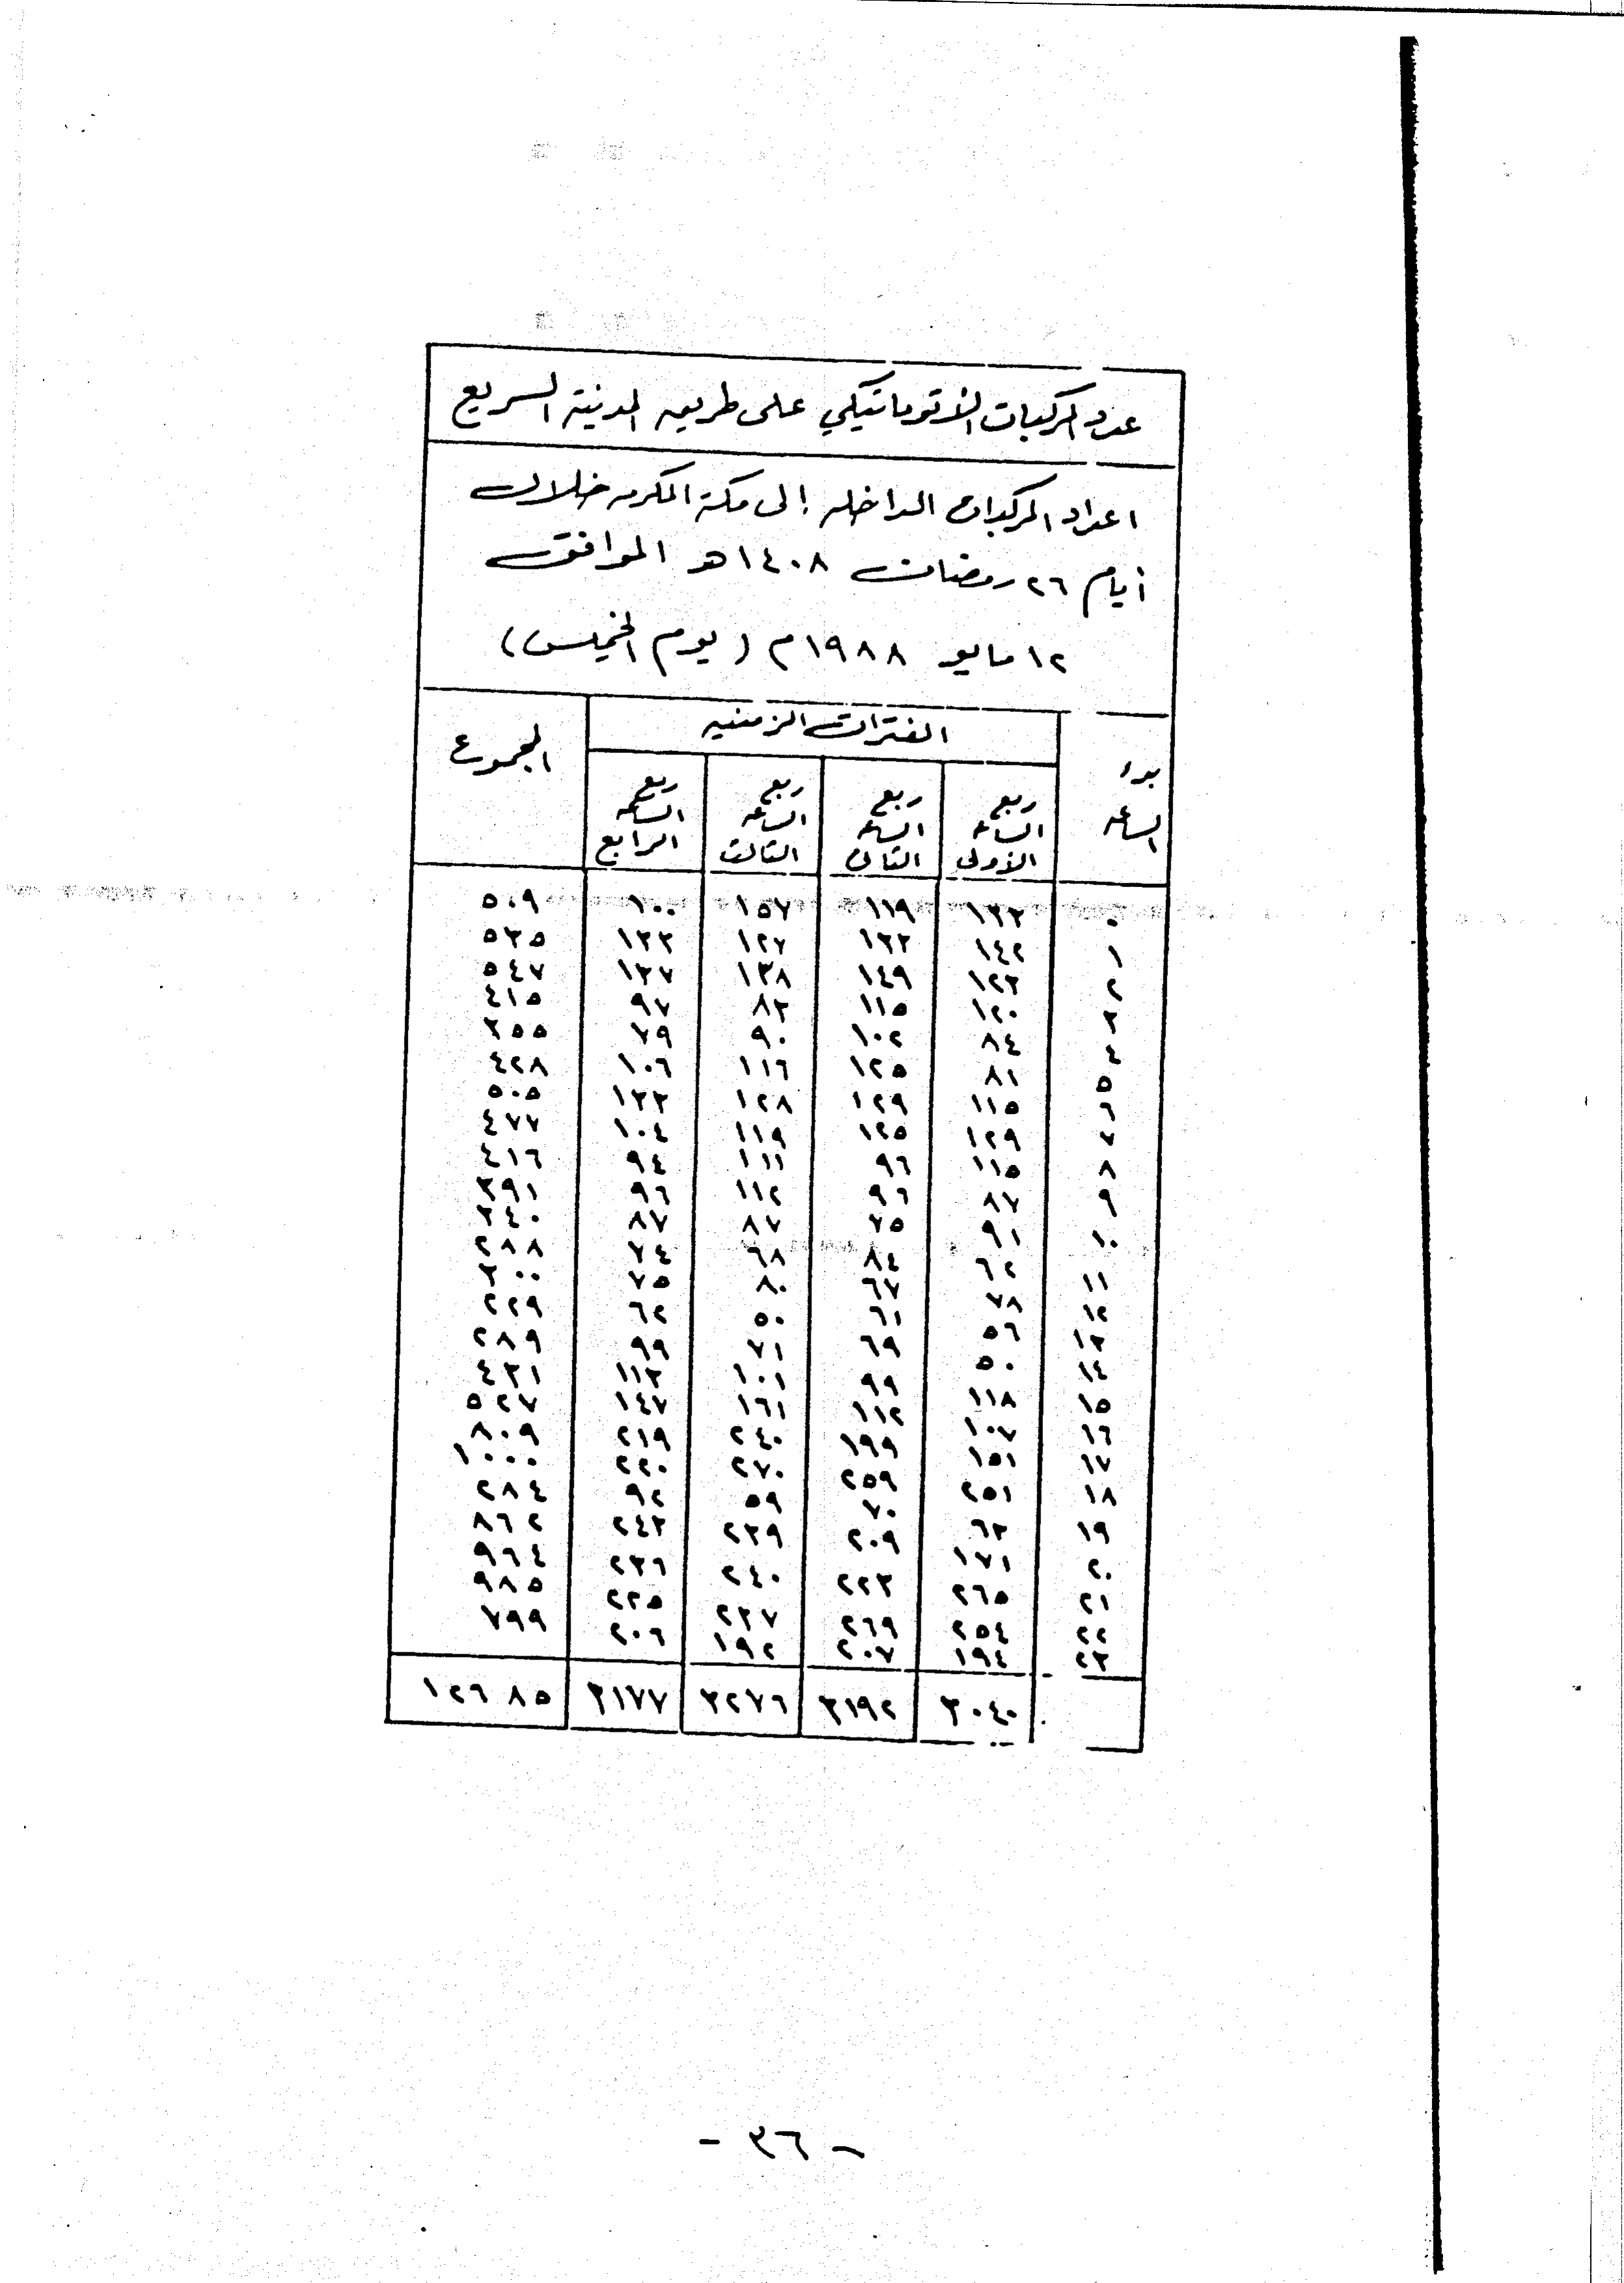 عدد المركبات الأتوماتيكي على طريق المدينة السريع
اعداد المركبات الداخله إلى مكة المكرمه خلال
أيام ٢٦ رمضان ١٤٠٨هـ الموافق
١٢ مايو ١٩٨٨م (يوم الخميس)
بدء الساعه
الفترات الزمنيه
المجموع
ربع الساعه الأولى
ربع الساعه الثاني
ربع الساعه الثالث
ربع الساعه الرابع
٠ ١٣٣ ١١٩ ١٥٧ ١٠٠ ٥٠٩
١ ١٤٢ ١٣٣ ١٢٧ ١٣٣ ٥٣٥
٢ ١٢٣ ١٤٩ ١٣٨ ١٣٧ ٥٤٧
٣ ١٢٠ ١١٥ ٨٣ ٩٧ ٤١٥
٤ ٨٤ ١٠٢ ٩٠ ٧٩ ٣٥٥
٥ ٨١ ١٢٥ ١١٦ ١٠٦ ٤٢٨
٦ ١١٥ ١٢٩ ١٢٨ ١٣٣ ٥٠٥
٧ ١٢٩ ١٢٥ ١١٩ ١٠٤ ٤٧٧
٨ ١١٥ ٩٦ ١١١ ٩٤ ٤١٦
٩ ٨٧ ٩٦ ١١٢ ٩٦ ٣٩١
١٠ ٩١ ٧٥ ٨٧ ٨٧ ٣٤٠
١١ ٦٢ ٨٤ ٦٨ ٧٤ ٢٨٨
١٢ ٧٨ ٦٧ ٨٠ ٧٥ ٣٠٠
١٣ ٥٦ ٦١ ٥٠ ٦٢ ٢٢٩
١٤ ٥٠ ٦٩ ٧١ ٩٩ ٢٨٩
١٥ ١١٨ ٩٩ ١٠١ ١١٣ ٤٣١
١٦ ١٠٧ ١١٢ ١٦١ ١٤٧ ٥٢٧
١٧ ١٥١ ١٩٩ ٢٤٠ ٢١٩ ٨٠٩
١٨ ٢٥١ ٢٥٩ ٢٧٠ ٢٢٠ ١٠٠٠
١٩ ٦٣ ٧٠ ٥٩ ٩٢ ٢٨٤
٢٠ ١٧١ ٢٠٩ ٢٣٩ ٢٤٣ ٨٦٢
٢١ ٢٦٥ ٢٢٣ ٢٤٠ ٢٣٦ ٩٦٤
٢٢ ٢٥٤ ٢٦٩ ٢٣٧ ٢٢٥ ٩٨٥
٢٣ ١٩٤ ٢٠٧ ١٩٢ ٢٠٦ ٧٩٩
٣٠٤٠ ٣١٩٢ ٣٢٧٦ ٣١٧٧ ١٢٦٨٥
- ٣٦ -